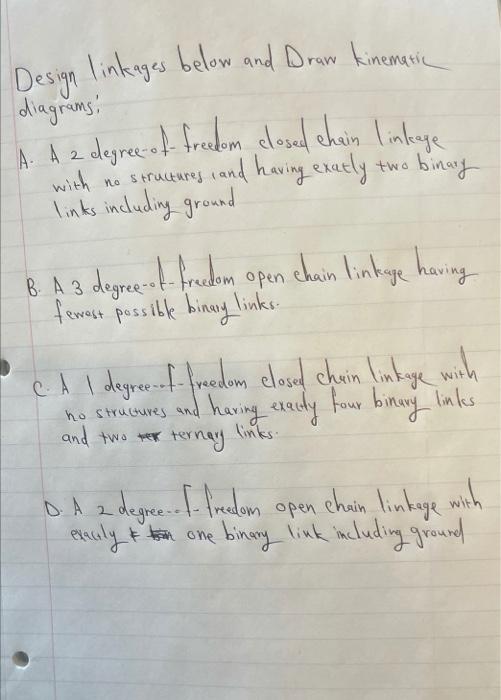 Design linkages below and Draw kinematic
diagrams:
A. A 2 degree-of-freedom closed chain linkage
with no structures, and having exactly two binary
links including ground
B. A 3 degree-of-freedom open chain linkage having
fewest possible binary links.
C. A 1 degree-of-freedom closed chain linkage with
no structures and having exactly four binary links
and two ternary links.
D. A 2 degree-of-freedom open chain linkage with
exactly one binary link including ground